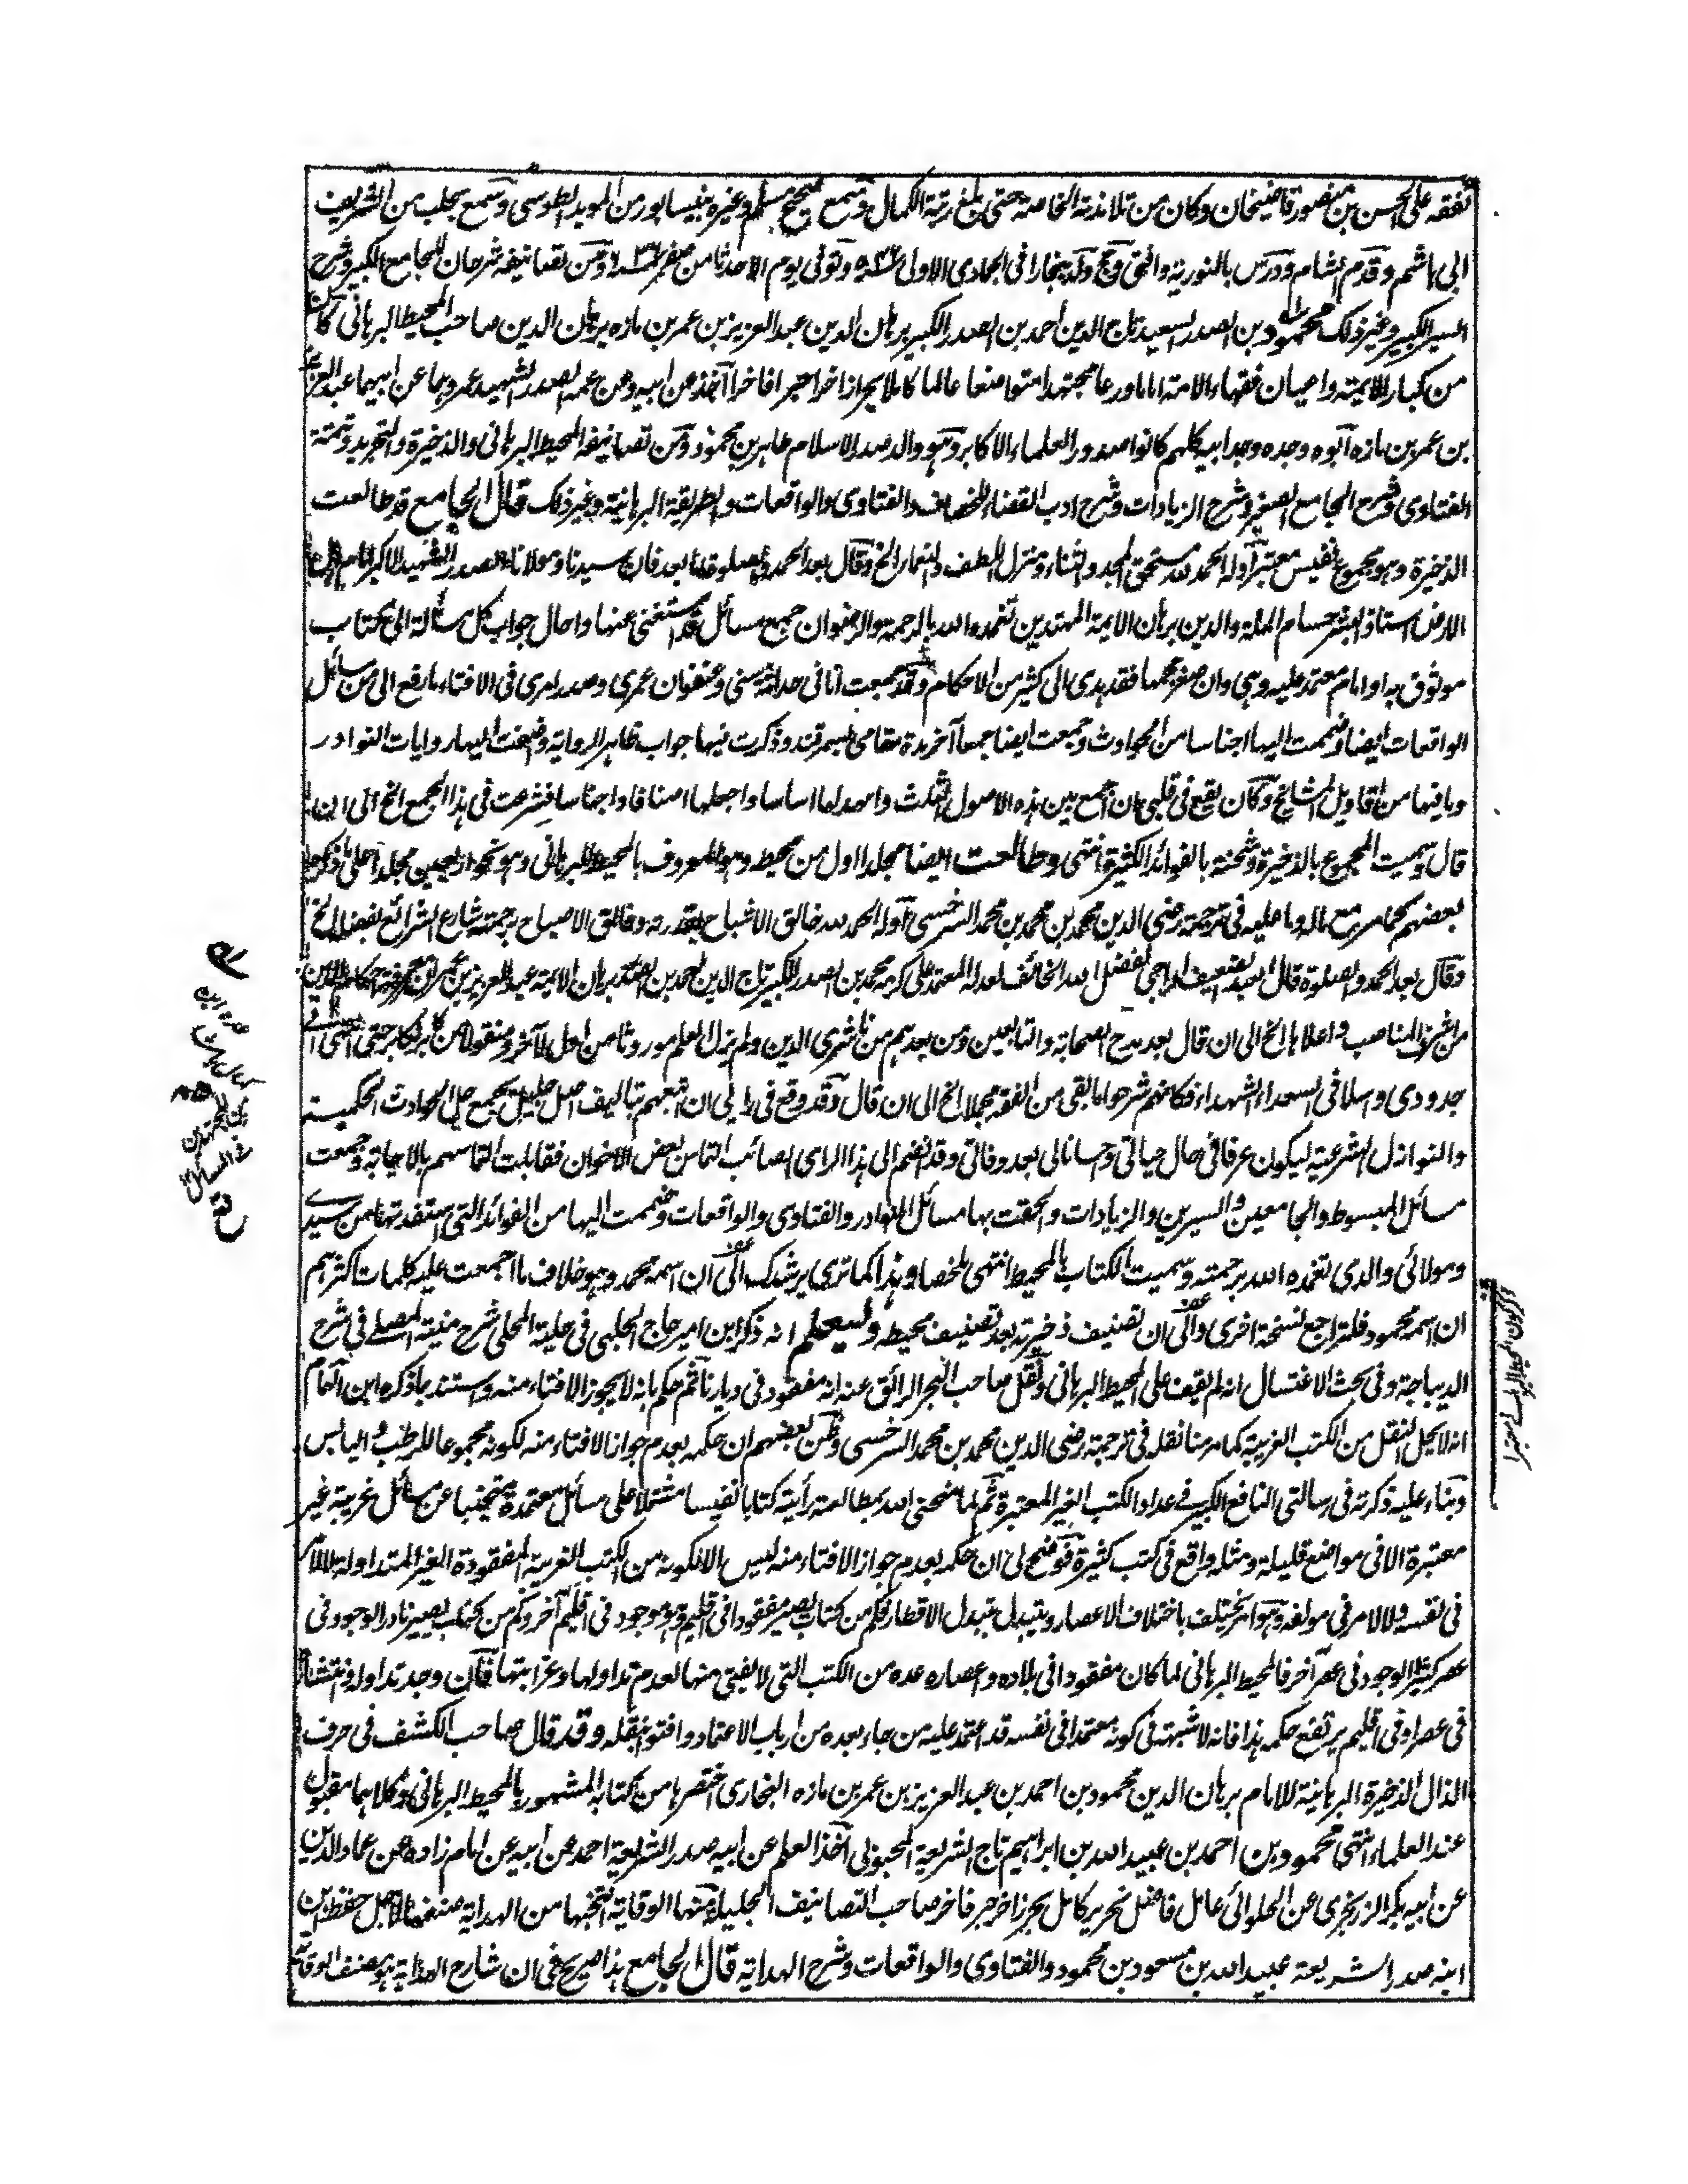 تفقه على الحسن بن منصور قاضيخان وكان من تلامذته الخاصة حتى بلغ رتبة الكمال وسمع صحيح مسلم وغيره بنيسابور من المويد الطوسي وسمع بحلب من الشريف
ابي هاشم وقدم الشام ودرس بالنورية وافتى وحج ولد ببخارا في الجمادى الاولى وتوفي يوم الاحد ثامن صفر ومن تصانيفه شرحان للجامع الكبير وشرح
السير الكبير وغير ذلك محمود بن الصدر السعيد تاج الدين احمد بن الصدر الكبير برهان الدين عبد العزيز بن عمر بن مازه برهان الدين صاحب المحيط البرهاني كان
من كبار الايمة واعيان فقهاء الامة اماما ورعا مجتهدا متواضعا عالما كاملا بحرا زاخرا حبرا فاخرا آخذ عن ابيه وعن عمه الصدر الشهيد عمر وهما عن ابيهما عبد العزيز
بن عمر بن مازه آبوه وجده وجد ابيه كلهم كانوا صدور العلماء الاكابر وهو والد صدر الاسلام طاهر بن محمود ومن تصانيفه المحيط البرهاني والذخيرة والتجريد وتتمة
الفتاوى وشرح الجامع الصغير وشرح الزيادات وشرح ادب القضاء للخصاف والفتاوى والواقعات والطريقة البرهانية وغير ذلك قال الجامع قد طالعت
الذخيرة وهو مجموع نفيس معتبر آوله الحمد لله مستحق الحمد والثناء ومنزل اللطف والنعماء الخ وقال بعد الحمد والصلوة اما بعد فان سيدنا ومولانا الصدر الشهيد الاكبر امام
الارض استاذ البشر حسام الملة والدين برهان الايمة المهتدين تغمده الله بالرحمة والرضوان جمع مسائل قد استفتى عنها واحال جواب كل مسئلة الى كتاب
موثوق به او امام معتمد عليه وهي وان صغر حجمها فقد يهدي الى كثير من الاحكام وقد جمعت انا في حداثة سني وعنفوان عمري وصدر امري في الافتاء ما رفع الي من مسائل
الواقعات ايضا وضممت اليها اجناسا من الحوادث وجمعت ايضا جمعا آخر مدة مقامي بسمرقند وذكرت فيها جواب ظاهر الرواية وضفت اليها روايات النوادر
وما فيها من اقاويل المشايخ وكان يقع في قلبي ان اجمع بين هذه الاصول الثلث وامهدها اساسا واجعلها اصنافا واجناسا فشرعت في هذا الجمع الخ الى ان
قال وسميت المجموع بالذخيرة وشحنته بالفوائد الكثيرة انتهى وطالعت ايضا مجلدا اول من محيطه وهو المعروف بالمحيط البرهاني وهو نحو اربعين مجلدا على ما ذكره
بعضهم كما مر مع ماله وما عليه في ترجمة رضي الدين محمد بن محمد بن محمد السرخسي آوله الحمد لله خالق الاشباح بقدرته وفالق الاصباح برحمته شارع الشرائع بفضله الخ
وقال بعد الحمد والصلوة قال العبد الضعيف الراجي لفضل الله الخائف لعدله المعتمد على كرمه محمد بن الصدر الكبير تاج الدين احمد بن الصدر برهان الايمة عبد العزيز بن عمر ان معرفة احكام الدين
من اشرف المناصب واعلاها الخ الى ان قال بعد مدح الصحابة والتابعين ومن بعدهم من ناشري الدين ولم يزل العلم موروثا من اول لآخر ومنقولا من كابر لكابر حتى انتهى الى
جدودي واسلافي السعداء الشهداء فكانهم شرحوا ما بقي من الفقه مجملا الخ الى ان قال وقد وقع في رايي ان اتشبه بهم بتاليف اصل جليل يجمع جل الحوادث الحكمية
والنوازل الشرعية ليكون عرفا في حال حياتي وحسنا لي بعد وفاتي وقد انضم الى هذا الراي الصائب التماس بعض الاخوان فقابلت التماسهم بالاجابة وجمعت
مسائل المبسوط والجامعين والسيرين والزيادات والحقت بها مسائل النوادر والفتاوى والواقعات وضممت اليها من الفوائد التي استفدتها من سيدي
ومولائي والدي تغمده الله برحمته وسميت الكتاب بالمحيط انتهى ملخصا وهذا كما ترى يرشدك الى ان اسمه محمد وهو خلاف ما اجمعت عليه كلمات اكثرهم
ان اسمه محمود فلتراجع لنسخة اخرى والى ان تصنيف ذخيرته بعد تصنيف محيطه وليعلم انه ذكر ابن امير حاج الحلبي في حلية المحلي شرح منية المصلي في شرح
الديباجة وفي بحث الاغتسال انه لم يقف على المحيط البرهاني ونقل صاحب البحر الرائق عنه انه مفقود في ديارنا ثم حكم بانه لا يجوز الافتاء منه واستند بما ذكره ابن الهمام
انه لا يحل النقل من الكتب الغريبة كما مر منا نقله في ترجمة رضي الدين محمد بن محمد السرخسي وظن بعضهم ان حكمه بعدم جواز الافتاء منه لكونه مجموعا للرطب واليابس
وبناء عليه ذكرته في رسالتي النافع الكبير في عداد الكتب الغير المعتبرة ثم لما منحني الله بمطالعته رأيته كتابا نفيسا مشتملا على مسائل معتمدة متجنبا عن مسائل غريبة غير
معتبرة الا في مواضع قليلة ومثله واقع في كتب كثيرة فوضح لي ان حكمه بعدم جواز الافتاء منه ليس الا لكونه من الكتب الغريبة المفقودة الغير المتداولة لا لامر
في نفسه ولا لامر في مولفه وهو امر يختلف باختلاف الاعصار ويتبدل بتبدل الاقطار فكم من كتاب يصير مفقودا في اقليم وهو موجود في اقليم آخر وكم من كتاب يصير نادر الوجود في
عصر كثير الوجود في عصر آخر فالمحيط البرهاني لما كان مفقودا في بلاده واعصاره عده من الكتب التي لا يفتى منها لعدم تداولها وغرابتها فان وجد تداوله وانتشاره
في عصر او في اقليم يرتفع حكمه هذا فانه لا شبهة في كونه معتمدا في نفسه قد اعتمد عليه من جاء بعده من ارباب الاعتماد وافتوا بنقله وقد قال صاحب الكشف في حرف
الذال الذخيرة البرهانية للامام برهان الدين محمود بن احمد بن عبد العزيز بن عمر بن مازه البخاري اختصرها من كتابه المشهور بالمحيط البرهاني وكلاهما مقبول
عند العلماء انتهى محمود بن احمد بن عبيد الله بن ابراهيم تاج الشريعة المحبوبي آخذ العلم عن ابيه صدر الشريعة احمد عن ابيه عن امام زاده عن عماد الدين
عن ابيه بكر الزرنجري عن الحلوائي عامل فاضل نحرير كامل بحر زاخر حبر فاخر صاحب التصانيف الجليلة منها الوقاية انتخبها من الهداية صنفها لاجل حفظ ابن
ابنه صدر الشريعة عبيد الله بن مسعود بن محمود والفتاوى والواقعات وشرح الهداية قال الجامع هذا صريح في ان شارح الهداية هو مصنف الوقاية